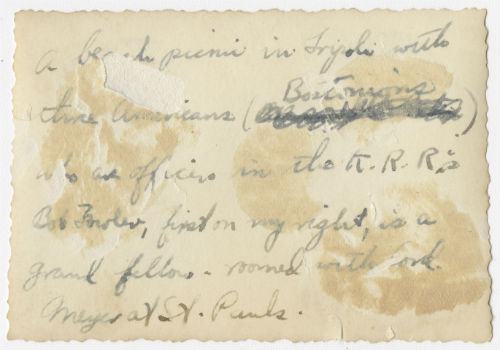 a beach picnic in Tripoli with
three Americans (Bostonians)
who are officers in the K.R.R.'s
Bob Fowler, first on my right, is a
grand fellow - roomed with
Meyer at St. Pauls.